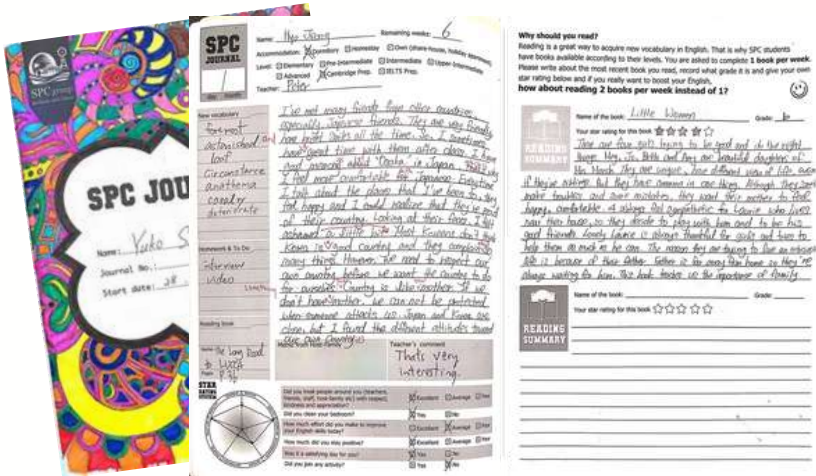 SPC group
SPC JOU
Name: Yuko S
Journal No.:
Start date: 28
SPC
JOURNAL
day month
Name: Hyo Jeong Remaining weeks: 6
Accommodation: Dormitory Homestay Own (share-house, holiday apartment,
Level: Elementary Pre-Intermediate Intermediate Upper-Intermediate
Advanced Cambridge Prep. IELTS Prep.
Teacher: Peter
New vocabulary
foremost
astonished
loaf
circumstance
anathema
deteriorate
Homework & To Do
interview
video
Reading book
The Long Road
to Lucca
P.36
I've met many friends from other countries,
especially Japanese friends. They are very friendly
and have bright looks all the time. So, I sometimes
have great time with them after class. I have
in Japan. That's why
I feel more comfortable with Japanese. Everytime
I talk about the places that I've been to, they
felt happy and I could realize that they're proud
of their country. Looking at their faces, I felt
ashamed a little bit. Most Koreans don't think
Korea is good country and they complain
many things. However, we need to respect our
own country before we want the country to do
something for ourselves. Country is like mother. If we
don't have mother, we can not be protected
when someone attacks us. Japan and Korea are
close, but I found the different attitudes toward
our own countries.
Teacher's comment
That's very
interesting.
STAR
RATING
SYSTEM
Did you treat people around you (teachers,
friends, staff, host family etc) with respect,
kindness and appreciation? Excellent Average Poor
Did you clean your bedroom? Yes No
How much effort did you make to improve
your English skills today? Excellent Average Poor
How much did you stay positive? Excellent Average Poor
Was it a satisfying day for you? Yes No
Did you join any activity? Yes No
Why should you read?
Reading is a great way to acquire new vocabulary in English. That is why SPC students
have books available according to their levels. You are asked to complete 1 book per week.
Please write about the most recent book you read, record what grade it is and give your own
star rating below and if you really want to boost your English,
how about reading 2 books per week instead of 1?
READING
SUMMARY
Name of the book: Little Women Grade: 6
Your star rating for this book
There are four girls trying to be good and do the right
things. Meg, Jo, Beth and Amy are beautiful daughters of
Mrs March. They are unique, have different view of life, even
if they're siblings. But they have common in one thing. Although they
make troubles and even mistakes, they want their mother to feel
happy, comfortable. I always feel sympathetic for Laurie who lives
near their house, so they decide to play with him and to be his
good friends. Lovely Laurie is always thankful for girls and tries to
help them as much as he can. The reason they are trying to live an
life is because of their father. Father is far away from home so they're
always waiting for him. This book teaches us the importance of family.
READING
SUMMARY
Name of the book: Grade:
Your star rating for this book